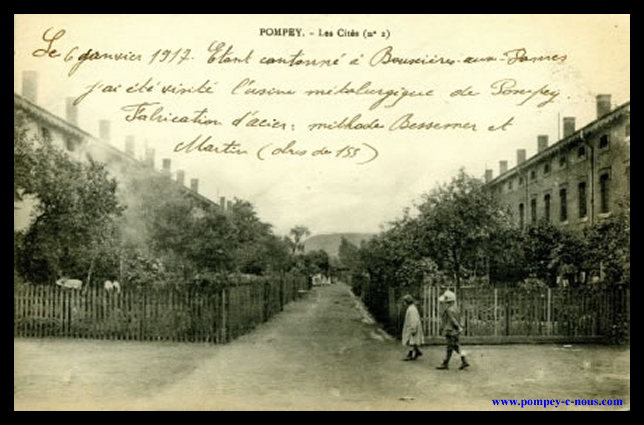 POMPEY. - Les Cités (n° 2)
Le 6 janvier 1917. Etant cantonné à Bouxières-aux-Dames
j'ai été visité l'usine métalurgique de Pompey.
Fabrication d'acier: méthode Bessemer et
Martin (obus de 155)
www.pompey-c-nous.com